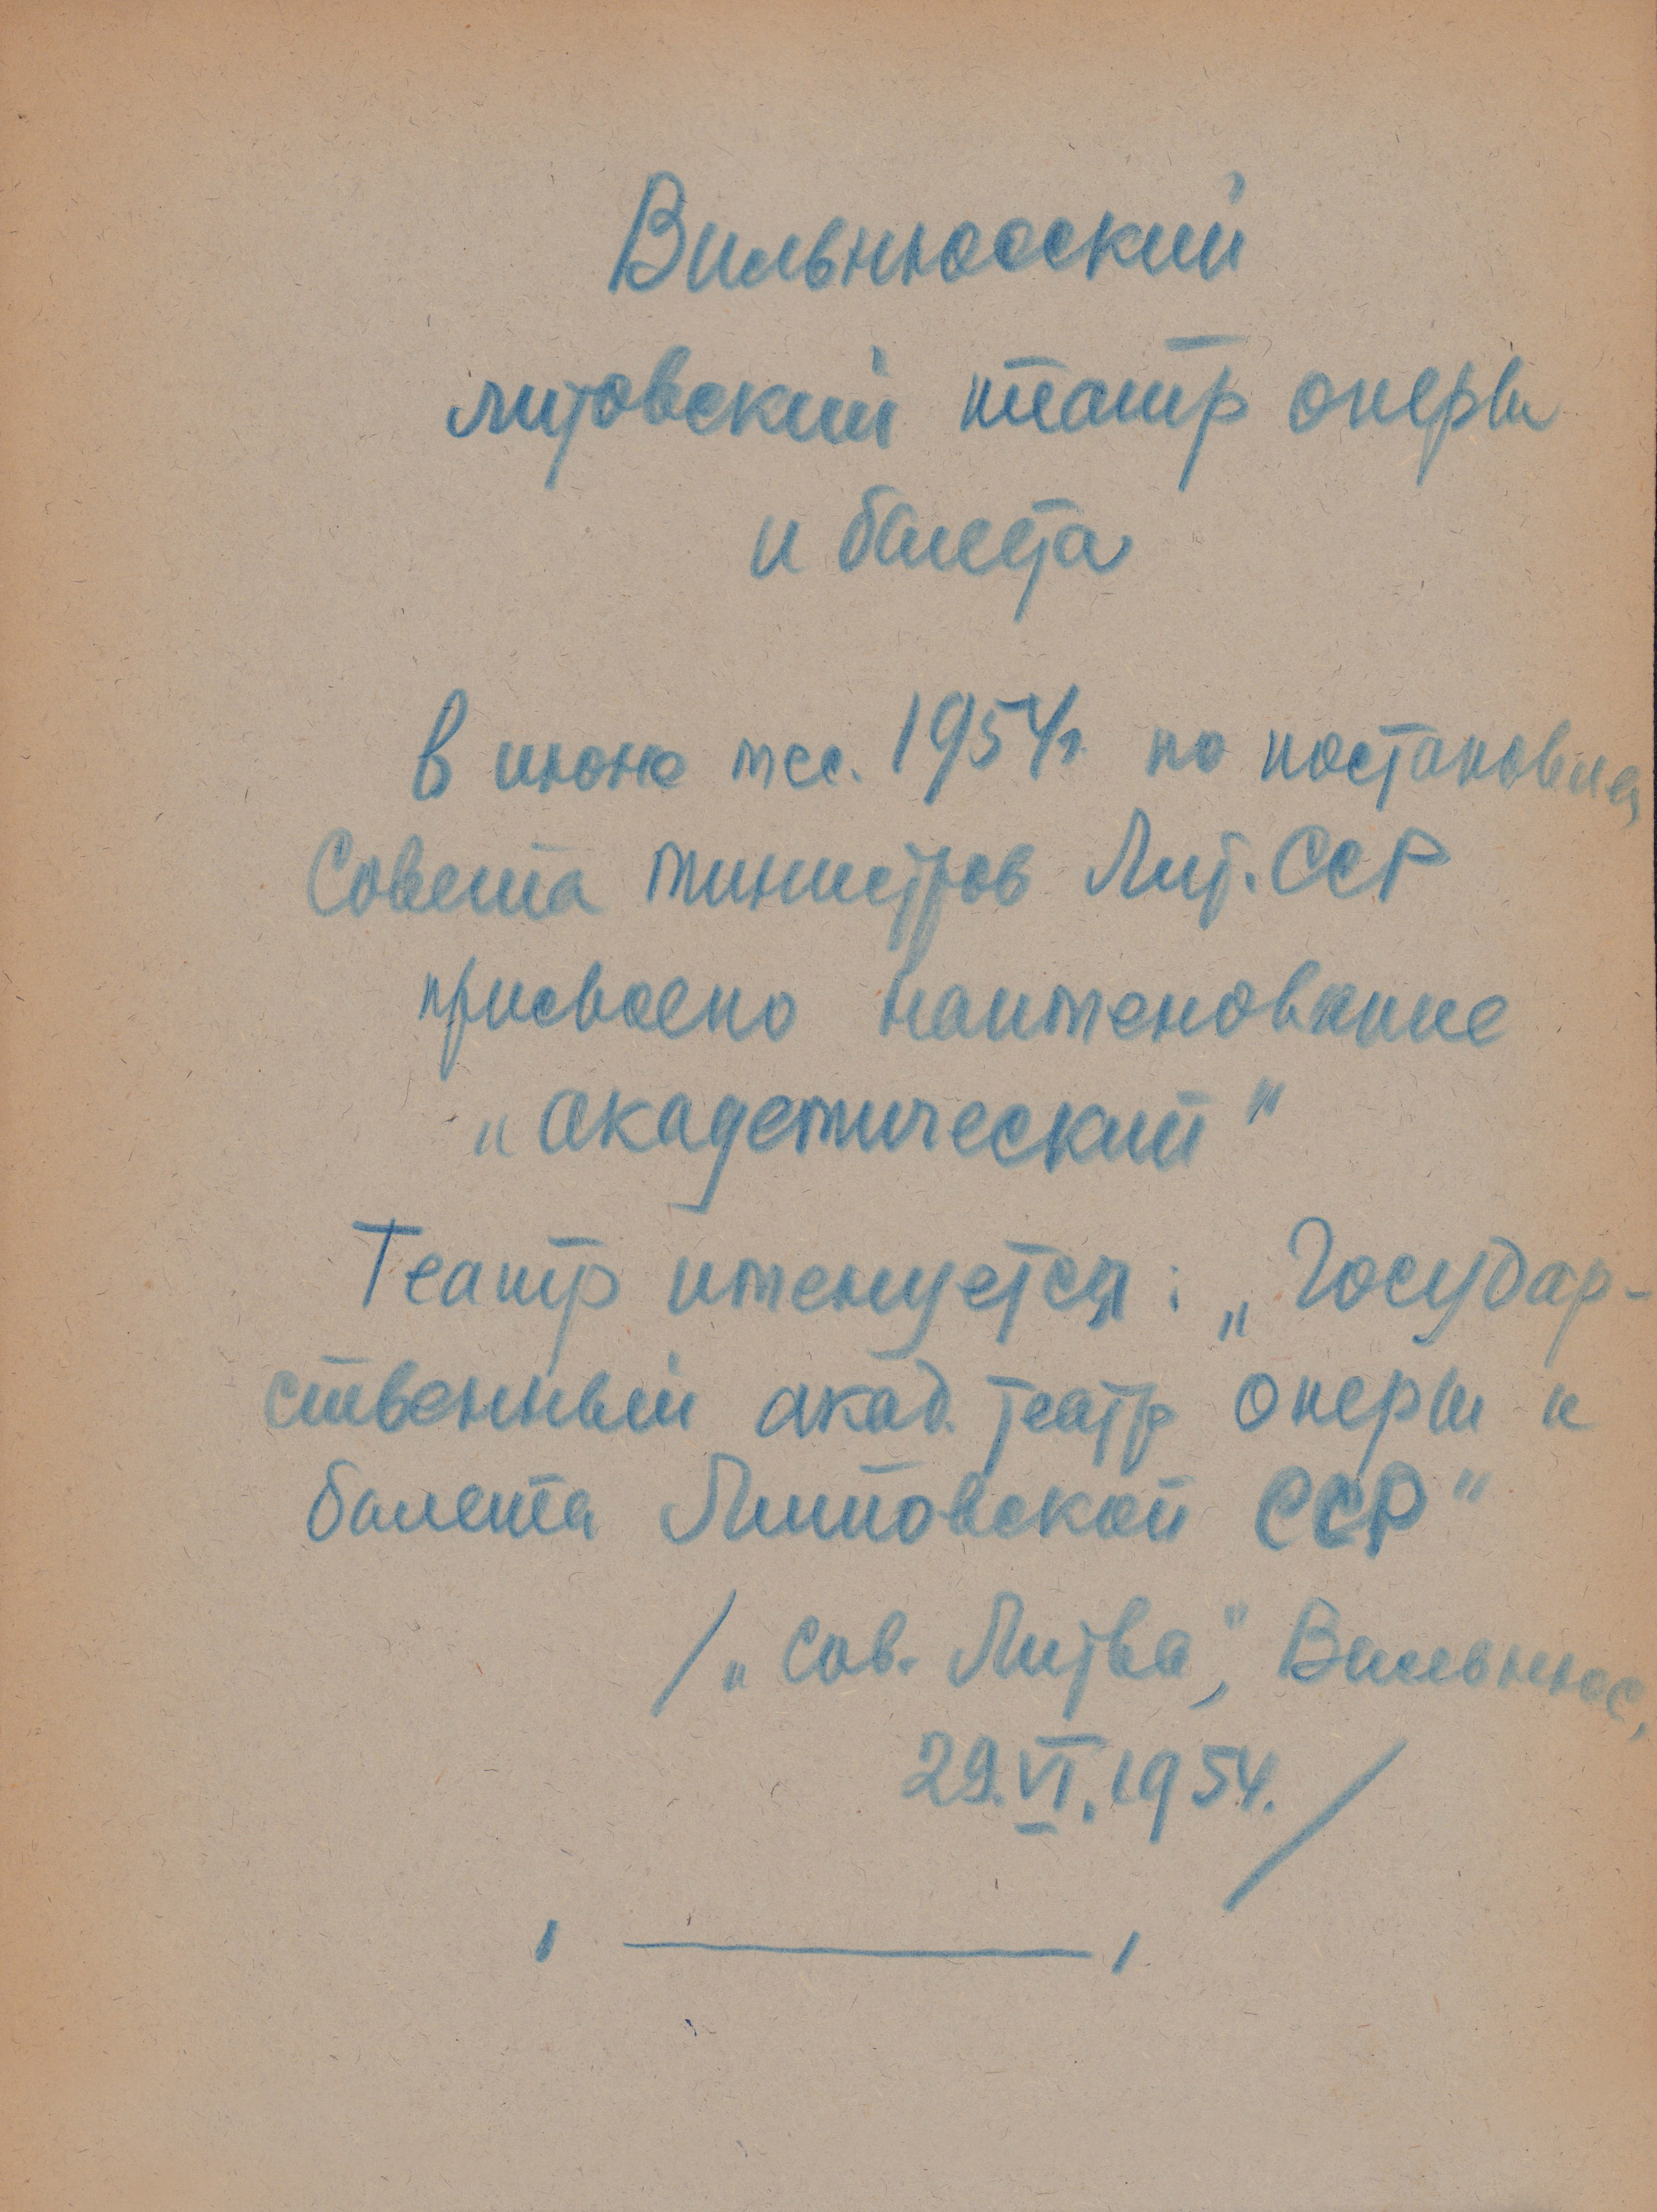 Вильнюсский
литовский театр оперы
и балета
В июне мес. 1954г. по постановлен.
Совета министров Лит. ССР
присвоено наименование
„академический"
Театр именуется: „Государ-
ственный акад. театр оперы и
балета Литовской ССР"
/„Сов. Литва", Вильнюс,
29.VI.1954./